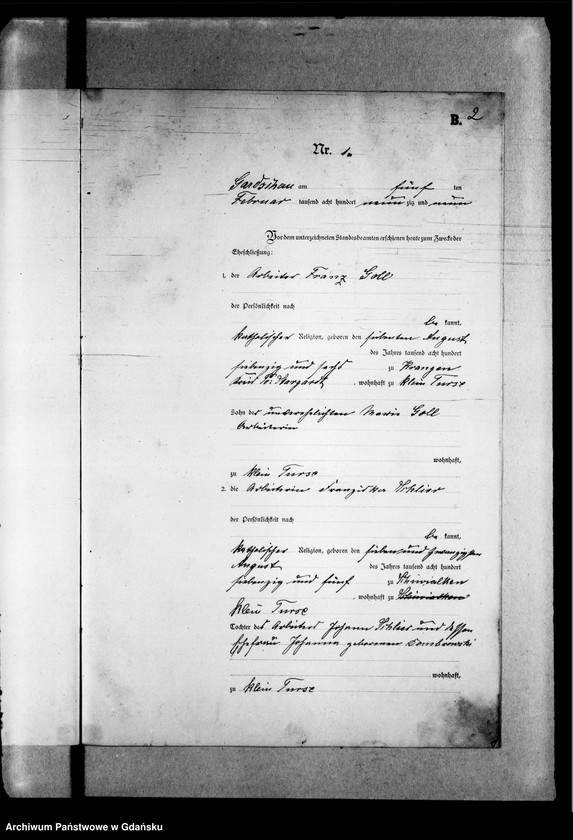 B. 2
Nr. 1.
Gardschau am fünf ten
Februar tausend acht hundert neunzig und neun
Vor dem unterzeichneten Standesbeamten erschienen heute zum Zwecke der
Eheschließung:
1. der Arbeiter Franz Goll
der Persönlichkeit nach
be kannt,
katholischer Religion, geboren den siebenten August
des Jahres tausend acht hundert
siebenzig und sechs zu Krangen
Kreis Pr. Stargardt, wohnhaft zu klein Turse
Sohn der unverehelichten Marie Goll
Arbeiterin
wohnhaft,
zu klein Turse
2. die Arbeiterin Franziska Schlier
der Persönlichkeit nach
be kannt,
katholischer Religion, geboren den sieben und zwanzigsten
August des Jahres tausend acht hundert
siebenzig und fünf zu
, wohnhaft zu
klein Turse
Tochter des Arbeiters Johann Schlier und dessen
Ehefrau Johanna geborenen Dombrowski
wohnhaft,
zu klein Turse
Archiwum Państwowe w Gdańsku